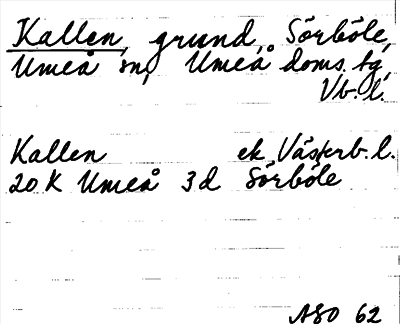 Kallen, grund, Sörböle,
Umeå sn, Umeå doms. tg,
Vb. l.
Kallen ek Västerb. l.
20 K Umeå 3 d Sörböle
ASO 62